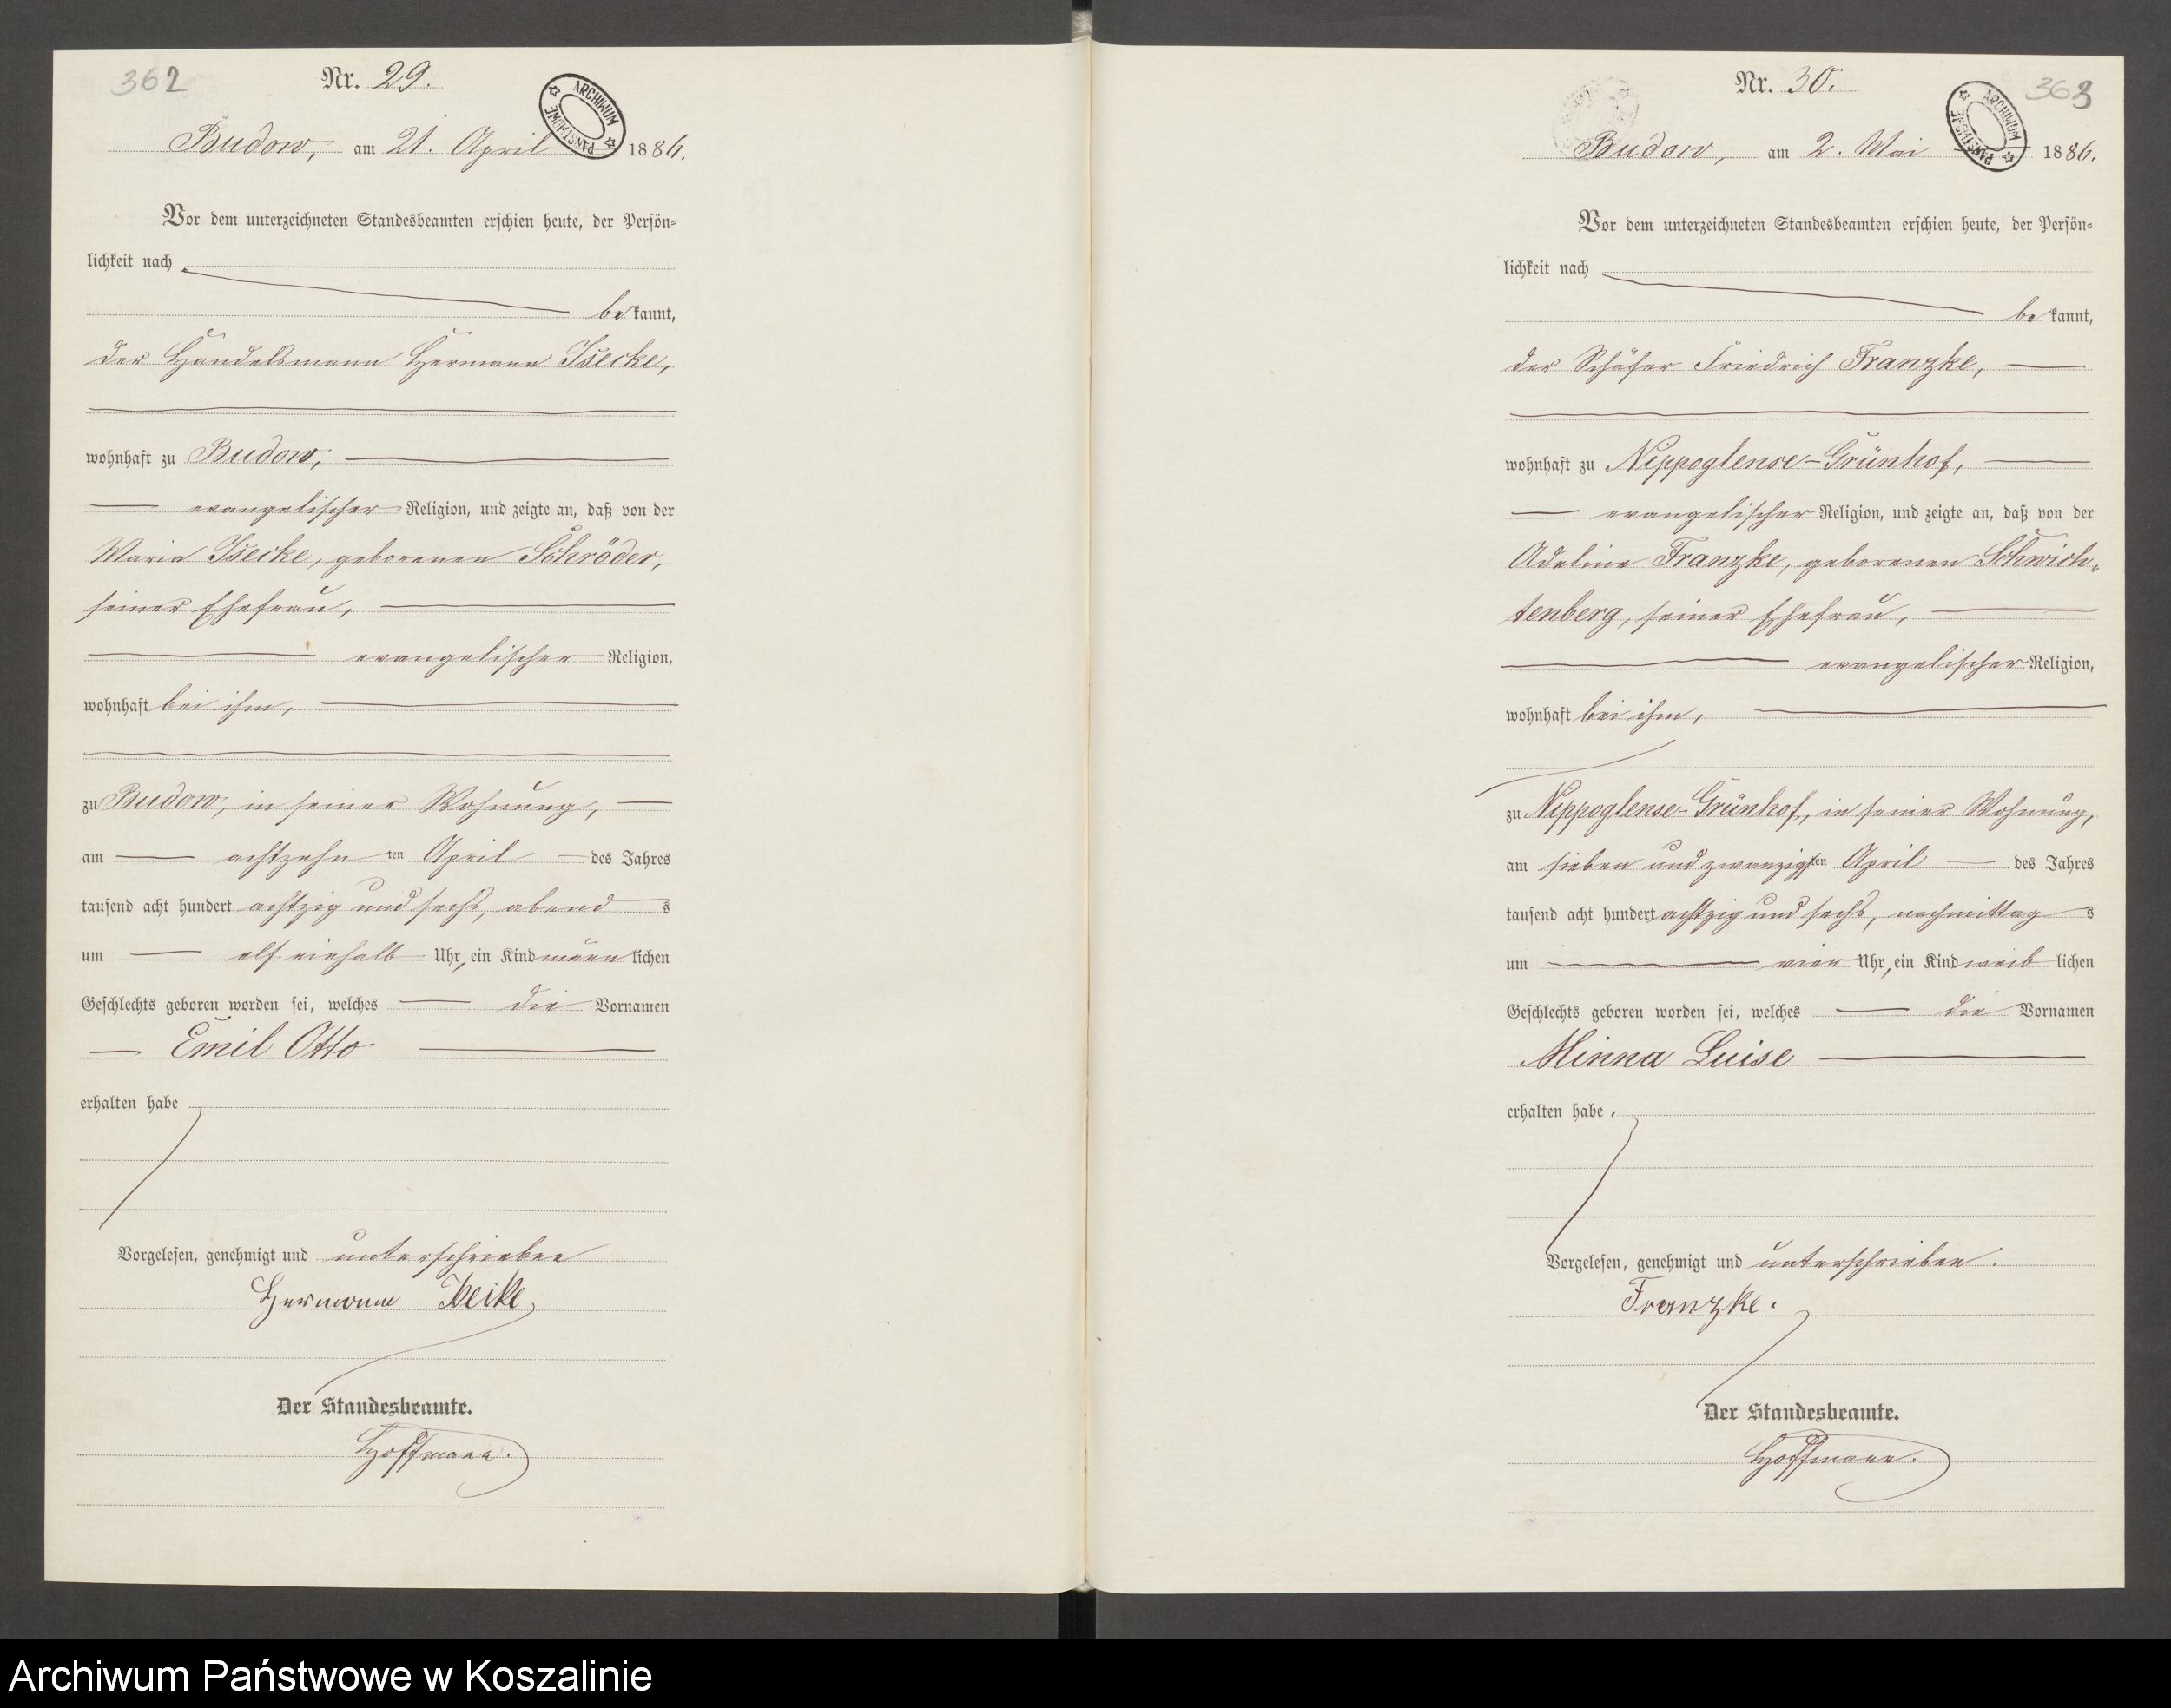 362
Nr. 29.
ARCHIWUM PAŃSTWOWE
Budow, am 21. April 1886.
Vor dem unterzeichneten Standesbeamten erschien heute, der Persön-
lichkeit nach
be kannt,
der Handelsmann Hermann
wohnhaft zu Budow,
evangelischer Religion, und zeigte an, daß von der
Maria geborenen Schröder,
seiner Ehefrau,
evangelischer Religion,
wohnhaft bei ihm,
zu Budow, in seiner Wohnung,
am achtzehn ten April des Jahres
tausend acht hundert achtzig und sechs, abend s
um elf einhalb Uhr, ein Kind männ lichen
Geschlechts geboren worden sei, welches die Vornamen
Emil Otto
erhalten habe
Vorgelesen, genehmigt und unterschrieben
Hermann
Der Standesbeamte.
Hoffmann.
363
Nr. 30.
ARCHIWUM PAŃSTWOWE
Budow, am 2. Mai 1886.
Vor dem unterzeichneten Standesbeamten erschien heute, der Persön-
lichkeit nach
be kannt,
der Schäfer Friedrich Franzke,
wohnhaft zu Nippoglense-Grünhof,
evangelischer Religion, und zeigte an, daß von der
Adeline Franzke, geborenen Schwich-
tenberg, seiner Ehefrau,
evangelischer Religion,
wohnhaft bei ihm,
zu Nippoglense-Grünhof, in seiner Wohnung,
am sieben und zwanzigsten April des Jahres
tausend acht hundert achtzig und sechs, nachmittag s
um vier Uhr, ein Kind weib lichen
Geschlechts geboren worden sei, welches die Vornamen
Minna Luise
erhalten habe.
Vorgelesen, genehmigt und unterschrieben.
Franzke.
Der Standesbeamte.
Hoffmann.
Archiwum Państwowe w Koszalinie